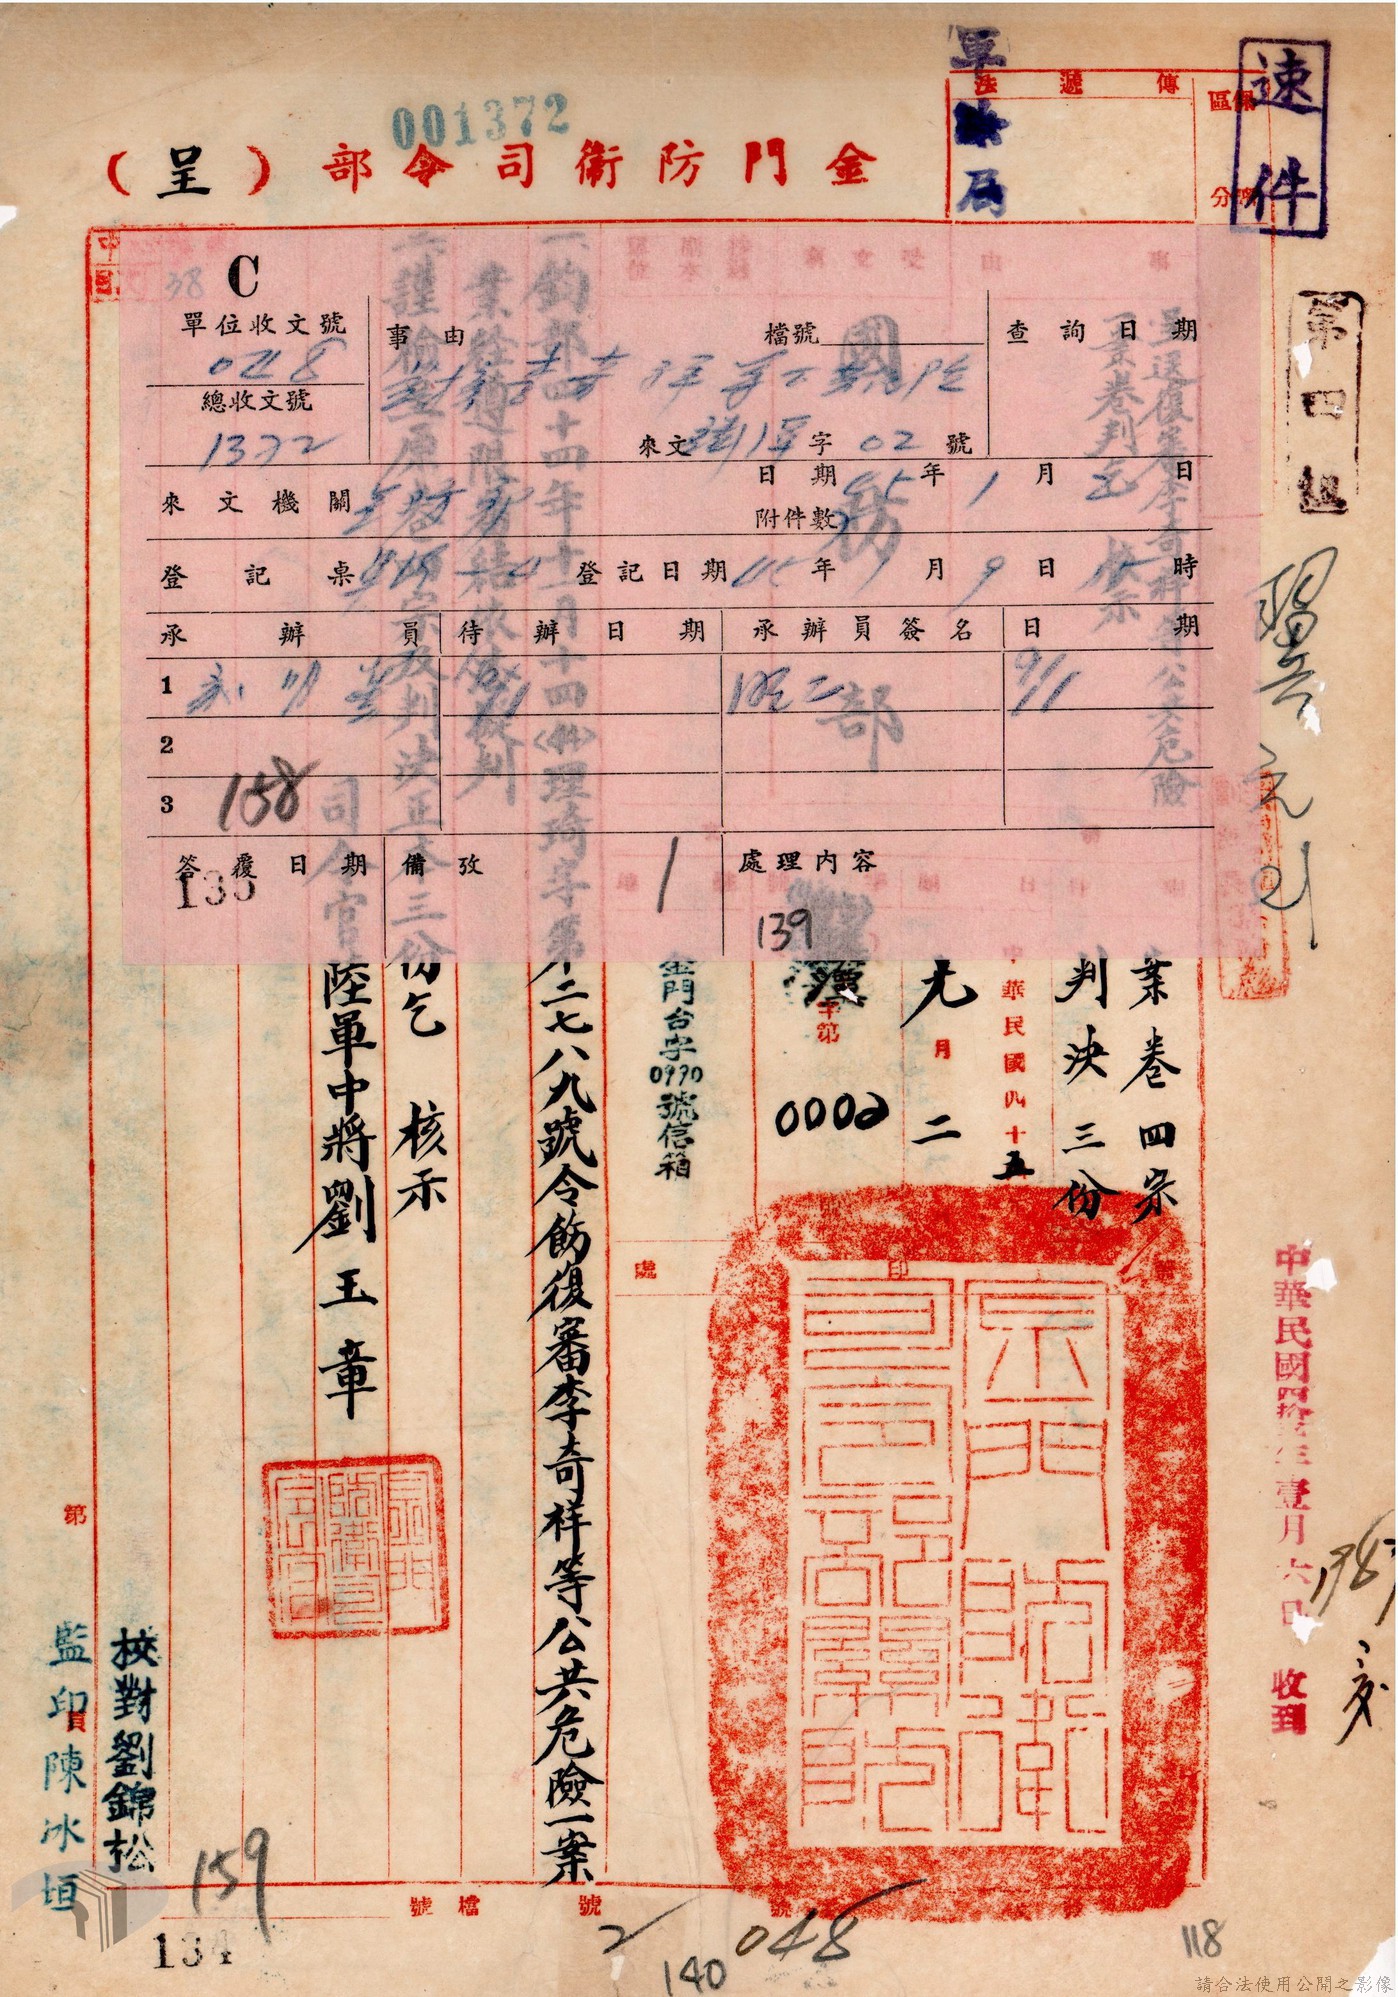 速件
軍法局
傳遞法
區
分
001372
金門防衛司令部（呈）
第四組
C
38
單位收文號
0218
總收文號
1372
事由
檔號
來文 字 02 號
查詢日期
來文機關
日期 45年1月2日
附件數
登記桌
登記日期 45年1月9日 時
承辦員
待辦日期
承辦員簽名
日期
1
9/1
9/1
2
3
158
答覆日期
135
備攷
1
處理內容
139
呈送復審李奇祥等公共危險
一案卷判乞 核示
國防部
案卷四宗
判決三份
中華民國四十五
元月二
字第
0002
金門台字0990號信箱
一、鈞部四十四年十二月十四〈44〉理琦字第二七八九號令飭復審李奇祥等公共危險一案
業經遵限審結依法擬判
二、謹檢呈原卷四宗及判決正本三份乞 核示
司令官陸軍中將劉玉章
印
處
金門防衛司令部關防
金門防衛司令官
中華民國肆拾伍年壹月六日 收到
第
校對劉錦松
監印員陳冰垣
159
134
檔號
號
號
2
048
140
118
請合法使用公開之影像